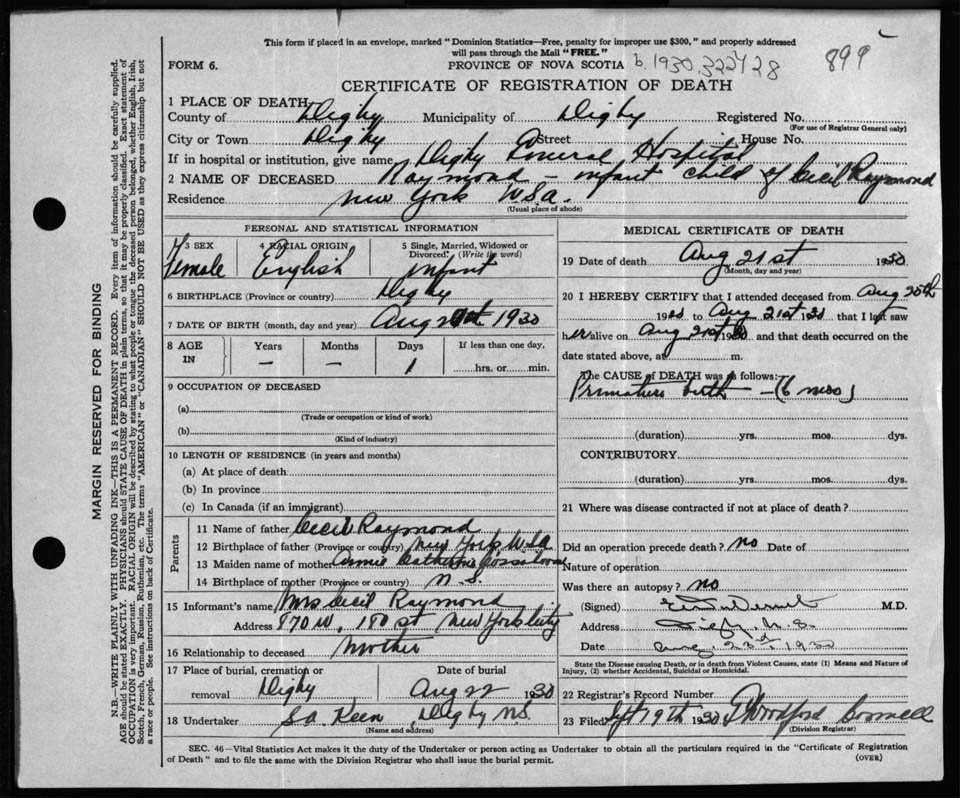 This form if placed in an envelope, marked "Dominion Statistics—Free, penalty for improper use $300," and properly addressed
will pass through the Mail "FREE."
FORM 6.
PROVINCE OF NOVA SCOTIA
b. 1930. 322428
899
CERTIFICATE OF REGISTRATION OF DEATH
1 PLACE OF DEATH
County of Digby Municipality of Digby Registered No.
(For use of Registrar General only)
City or Town Digby Street House No.
If in hospital or institution, give name Digby General Hospital
2 NAME OF DECEASED Raymond - infant child of Cecil Raymond
Residence New York USA.
(Usual place of abode)
PERSONAL AND STATISTICAL INFORMATION
3 SEX
Female
4 RACIAL ORIGIN
English
5 Single, Married, Widowed or Divorced. (Write the word)
infant
6 BIRTHPLACE (Province or country) Digby
7 DATE OF BIRTH (month, day and year) Aug 1930
8 AGE IN
Years Months Days If less than one day,
— — 1 hrs. or min.
9 OCCUPATION OF DECEASED
(a)
(Trade or occupation or kind of work)
(b)
(Kind of industry)
10 LENGTH OF RESIDENCE (in years and months)
(a) At place of death
(b) In province
(c) In Canada (if an immigrant)
Parents
11 Name of father Cecil Raymond
12 Birthplace of father (Province or country) New York, USA
13 Maiden name of mother Annie Catherine
14 Birthplace of mother (Province or country) N.S.
15 Informant's name Mrs Cecil Raymond
Address 870 W. 180 st New York City
16 Relationship to deceased Mother
17 Place of burial, cremation or removal Digby
Date of burial Aug 22 1930
18 Undertaker Keen Digby NS.
(Name and address)
MEDICAL CERTIFICATE OF DEATH
19 Date of death Aug 21st 1930
(Month, day and year)
20 I HEREBY CERTIFY that I attended deceased from Aug 20th
1930 to Aug 21st 1930 that I last saw
her alive on Aug 21st 1930 and that death occurred on the
date stated above, at m.
The CAUSE of DEATH was as follows:—
Premature birth — (6 mos)
(duration) yrs. mos. dys.
CONTRIBUTORY
(duration) yrs. mos. dys.
21 Where was disease contracted if not at place of death?
Did an operation precede death? no Date of
Nature of operation
Was there an autopsy? no
(Signed) M.D.
Address Digby, N.S.
Date Aug. 23rd, 1930
State the Disease causing Death, or in death from Violent Causes, state (1) Means and Nature of
Injury, (2) whether Accidental, Suicidal or Homicidal.
22 Registrar's Record Number
23 Filed Sept 19th 1930
(Division Registrar)
SEC. 46—Vital Statistics Act makes it the duty of the Undertaker or person acting as Undertaker to obtain all the particulars required in the "Certificate of Registration
of Death" and to file the same with the Division Registrar who shall issue the burial permit.
(OVER)
MARGIN RESERVED FOR BINDING
N.B.—WRITE PLAINLY WITH UNFADING INK—THIS IS A PERMANENT RECORD. Every item of information should be carefully supplied.
AGE should be stated EXACTLY. PHYSICIANS should STATE CAUSE OF DEATH in plain terms, so that it may be properly classified. Exact statement of
OCCUPATION is very important. RACIAL ORIGIN will be described by stating to what people or tongue the deceased person belonged, whether English, Irish,
Scotch, French, German, Russian, Ruthenian, etc. The terms "AMERICAN" or "CANADIAN" SHOULD NOT BE USED as they express citizenship but not
a race or people. See instructions on back of Certificate.